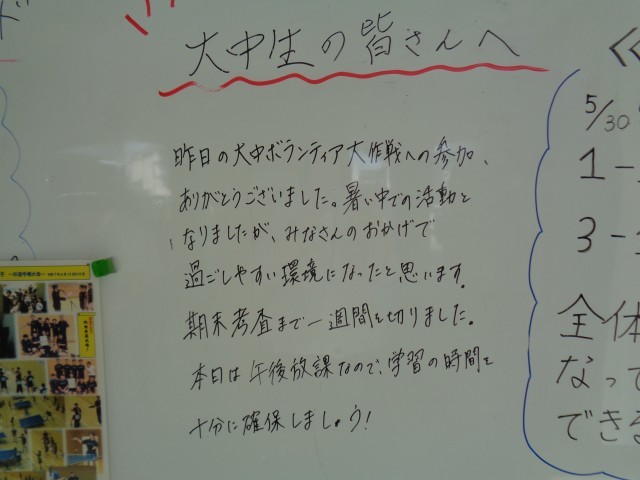 大中生の皆さんへ
昨日の大中ボランティア大作戦への参加、
ありがとうございました。暑い中での活動と
なりましたが、みなさんのおかげで
過ごしやすい環境になったと思います。
期末考査まで一週間を切りました。
本日は午後放課なので、学習の時間を
十分に確保しましょう！
ド
≪
5/30
1-
3-
全体
なって
でき